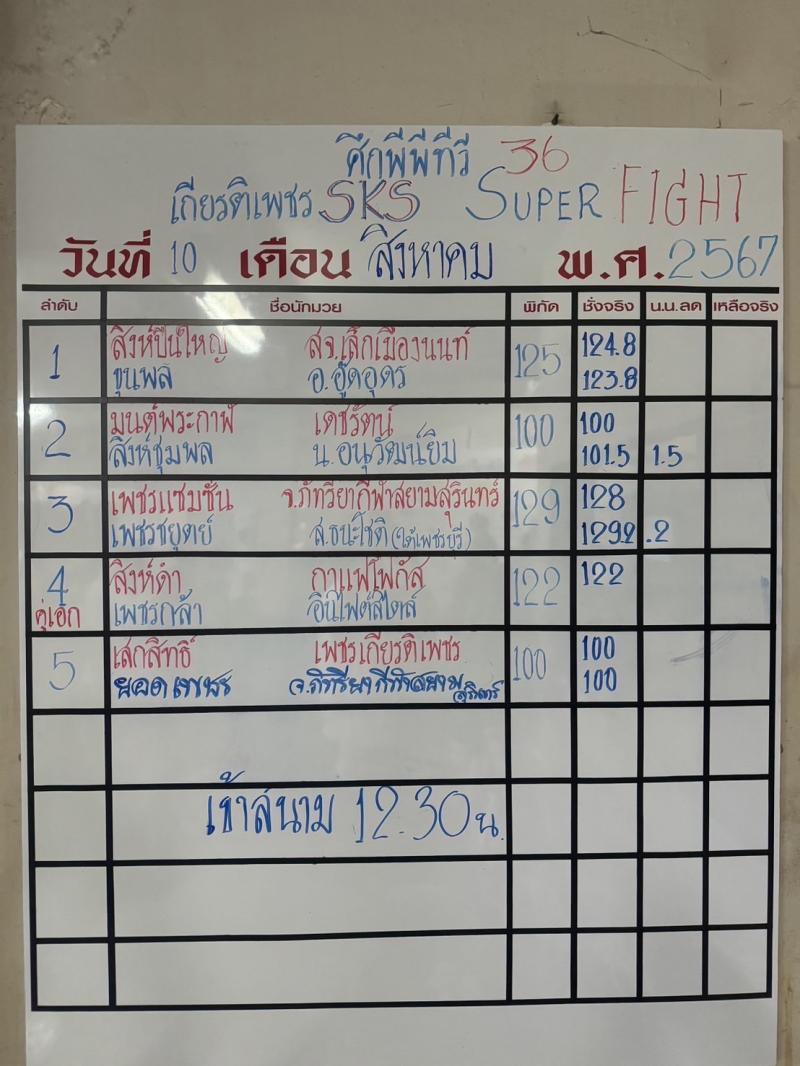 ศึกพีพีทีวี 36
เกียรติเพชร SKS SUPER FIGHT
วันที่ 10 เดือน สิงหาคม พ.ศ. 2567
ลำดับ ชื่อนักมวย พิกัด ชั่งจริง น.น.ลด เหลือจริง
1 สิงห์ปืนใหญ่ สจ.เล็กเมืองนนท์ 125 124.8
ขุนพล อ.อู๊ดอุดร 123.8
2 มนต์พระกาฬ เดชรัตน์ 100 100
สิงห์ชุมพล น.อนุวัฒน์ยิม 101.5 1.5
3 เพชรแซมซั่น จ.ภัทรียากีฬาสยามสุรินทร์ 129 128
เพชรชยุตย์ ส.ธนะโชติ (ใต้เพชรบุรี) 129.2 .2
4 สิงห์ดำ กาแฟโฟกัส 122 122
คู่เอก เพชรกล้า อินไฟต์สไตล์
5 เสกสิทธิ์ เพชรเกียรติเพชร 100 100
ยอดเพชร จ.ภัทรียากีฬาสยามสุรินทร์ 100
เข้าสนาม 12.30 น.